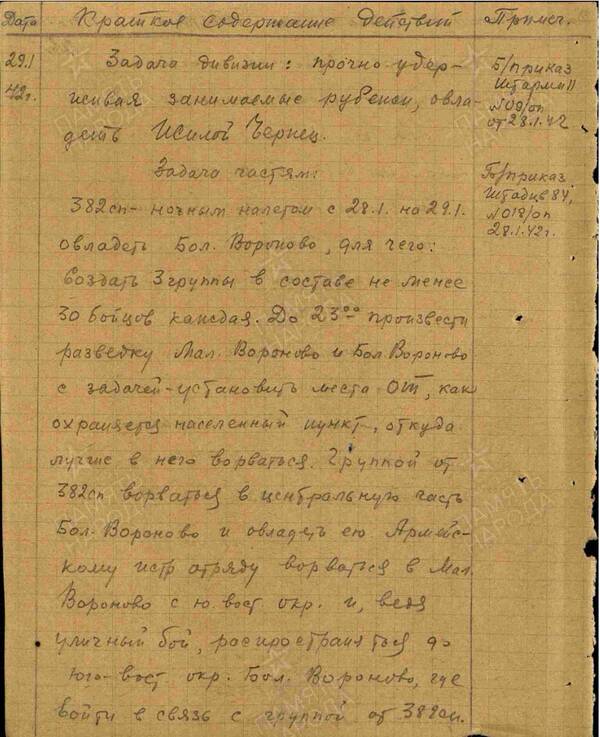 Дата Краткое содержание действий Примеч.
29.1 Задача дивизии: прочно удер-
42г. живая занимаемые рубежи, овла-
деть Жилой Чернец.
Задача частям:
382сп - ночным налетом с 28.1. на 29.1.
овладеть Бол. Вороново, для чего:
создать 3 группы в составе не менее
30 бойцов каждая. До 23⁰⁰ произвести
разведку Мал. Вороново и Бол. Вороново
с задачей - установить места ОТ, как
охраняется населенный пункт, откуда
лучше в него ворваться. Группой от
382сп ворваться в центральную часть
Бол. Вороново и овладеть ею Армейс-
кому истр отряду ворваться в Мал.
Вороново с ю. вост окр. и, ведя
уличный бой, распространяться до
Юго-вост окр. Бол. Вороново, где
войти в связь с группой от 382сп.
Б/приказ
Штарм 11
№09/оп
от 28.1.42
Б/приказ
Штадив 84,
№018/оп
28.1.42г.
ПАМЯТЬ
НАРОДА